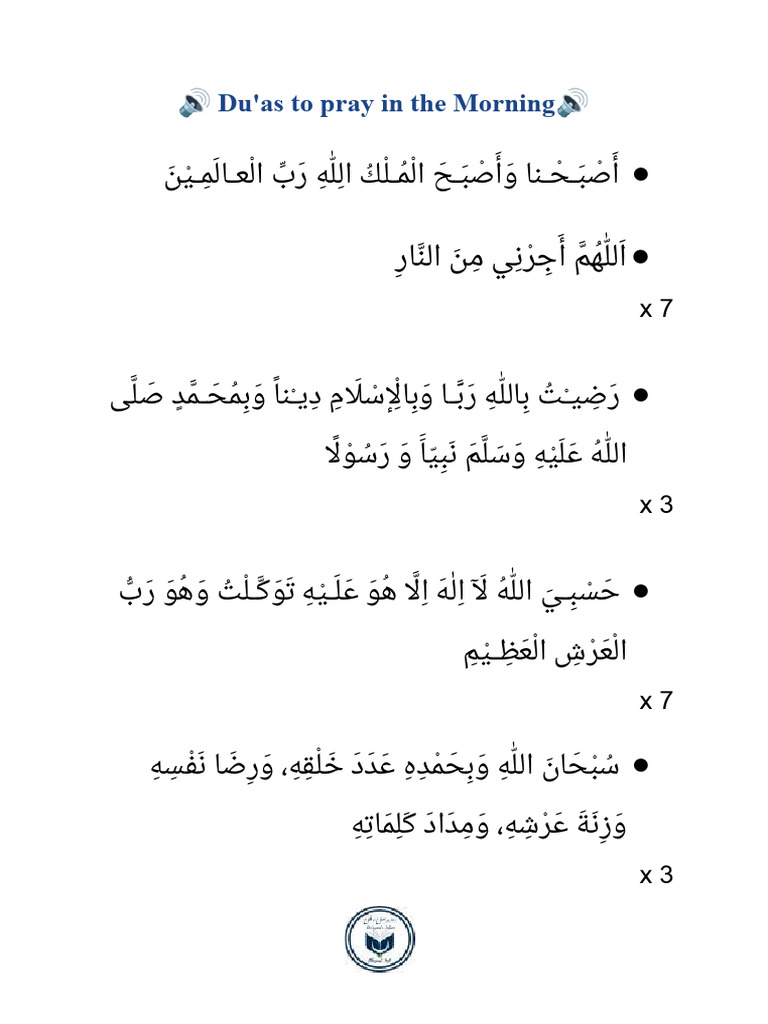 🔊 Du'as to pray in the Morning🔊
● أَصْبَـحْـنا وَأَصْبَـحَ الْمُـلْكُ الِلّٰهِ رَبِّ الْعـالَمِـيْنَ
● اَللّٰهُمَّ أَجِرْنِي مِنَ النَّارِ
x 7
● رَضِيـْتُ بِاللّٰهِ رَبَّـا وَبِالْإِسْلَامِ دِيـْناً وَبِمُحَـمَّدٍ صَلَّى
اللّٰهُ عَلَيْهِ وَسَلَّمَ نَبِيّاََ وَ رَسُوْلًا
x 3
● حَسْبِـيَ اللّٰهُ لَآ اِلٰهَ اِلَّا هُوَ عَلَـيْهِ تَوَكَّـلْتُ وَهُوَ رَبُّ
الْعَرْشِ الْعَظِـيْمِ
x 7
● سُبْحَانَ اللّٰهِ وَبِحَمْدِهِ عَدَدَ خَلْقِهِ، وَرِضَا نَفْسِهِ
وَزِنَةَ عَرْشِهِ، وَمِدَادَ كَلِمَاتِهِ
x 3